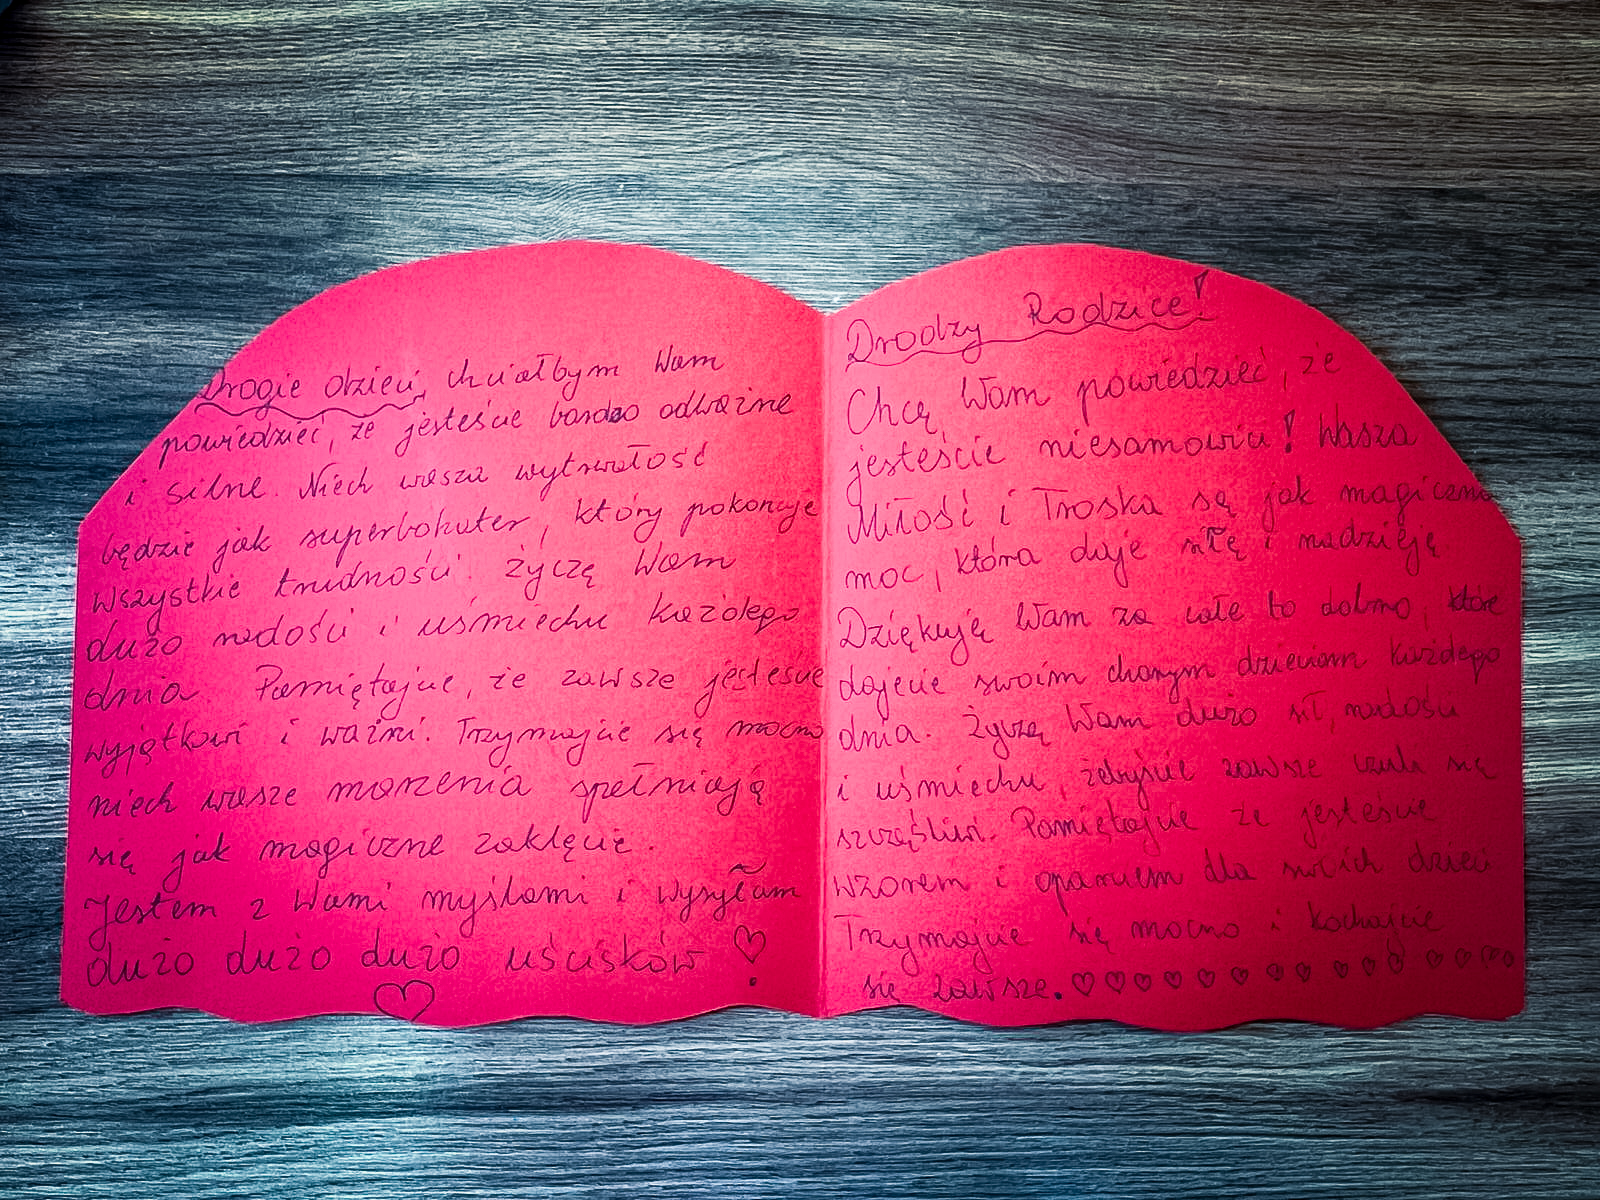 Drogie dzieci, chciałbym Wam
powiedzieć, że jesteście bardzo odważne
i silne. Niech wasza wytrwałość
będzie jak superbohater, który pokonuje
wszystkie trudności. Życzę Wam
dużo radości i uśmiechu każdego
dnia. Pamiętajcie, że zawsze jesteście
wyjątkowi i ważni. Trzymajcie się mocno
niech wasze marzenia spełniają
się jak magiczne zaklęcie.
Jestem z Wami myślami i wysyłam
dużo dużo dużo uścisków
Drodzy Rodzice!
Chcę Wam powiedzieć, że
jesteście niesamowici! Wasza
Miłość i Troska są jak magiczna
moc, która daje siłę i nadzieję.
Dziękuję Wam za całe to dobro, które
dajecie swoim chorym dzieciom każdego
dnia. Życzę Wam dużo sił, radości
i uśmiechu, żebyście zawsze czuli się
szczęśliwi. Pamiętajcie że jesteście
wzorem i oparciem dla swoich dzieci
Trzymajcie się mocno i kochajcie
się zawsze.